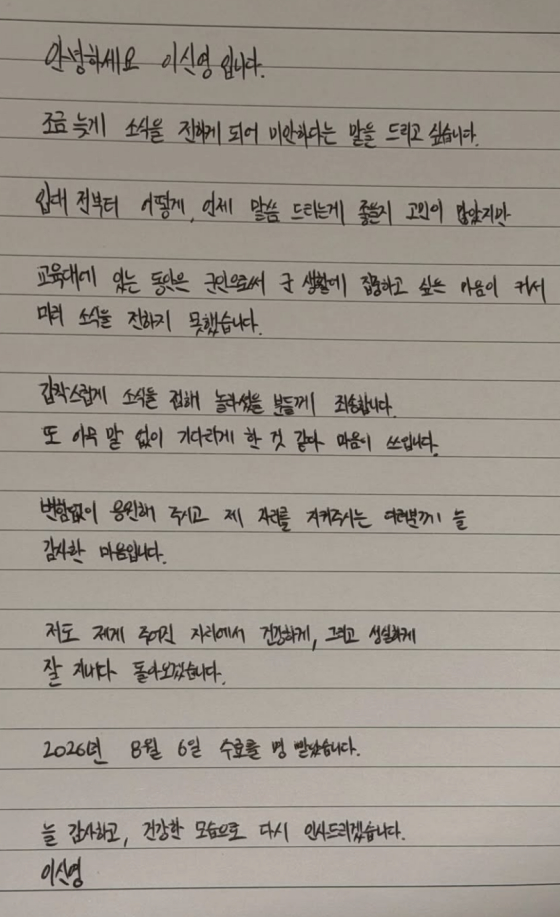 안녕하세요 이신영입니다.
조금 늦게 소식을 전하게 되어 미안하다는 말을 드리고 싶습니다.
입대 전부터 어떻게, 언제 말씀 드리는게 좋을지 고민이 많았지만
교육대에 있는 동안은 군인으로써 군 생활에 집중하고 싶은 마음이 커서
미리 소식을 전하지 못했습니다.
갑작스럽게 소식을 접해 놀라셨을 분들께 죄송합니다.
또 아무 말 없이 기다리게 한 것 같다 마음이 쓰입니다.
변함없이 응원해 주시고 제 자리를 지켜주시는 여러분께 늘
감사한 마음입니다.
저도 제게 주어진 자리에서 건강하게, 그리고 성실하게
잘 지내다 돌아오겠습니다.
2026년 8월 6일 수료를 명 받았습니다.
늘 감사하고, 건강한 모습으로 다시 인사드리겠습니다.
이신영